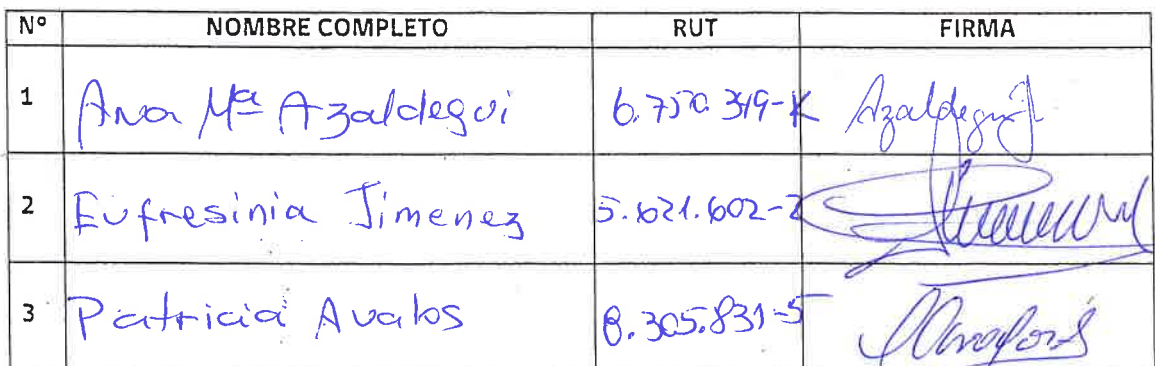 Nº NOMBRE COMPLETO RUT FIRMA
1 Ana Mª Azaldegui 6.750.349-K Azaldegui
2 Eufresinia Jimenez 5.621.602-2
3 Patricia Avalos 8.305.831-5